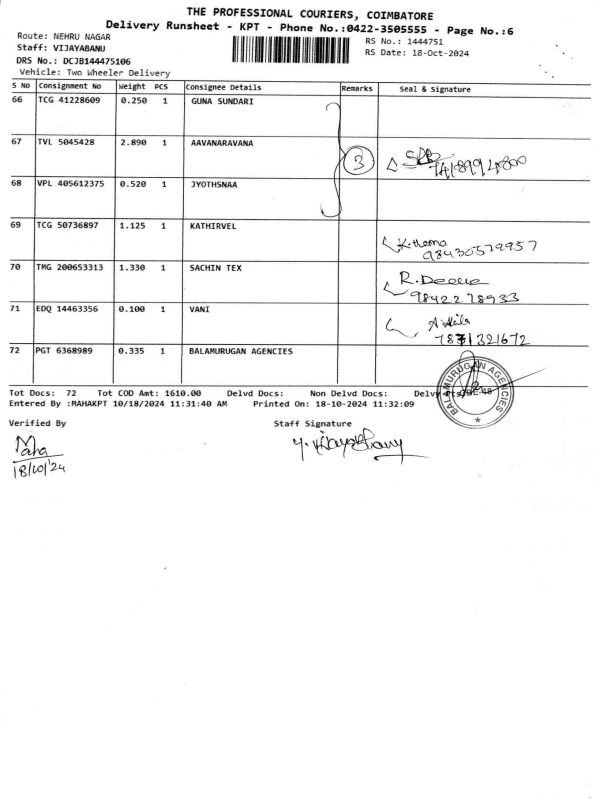 THE PROFESSIONAL COURIERS, COIMBATORE
Delivery Runsheet - KPT - Phone No.:0422-3505555 - Page No.:6
Route: NEHRU NAGAR
Staff: VIJAYABANU
DRS No.: DCJB144475106
Vehicle: Two Wheeler Delivery
RS No.: 1444751
RS Date: 18-Oct-2024
S No Consignment No Weight PCS Consignee Details Remarks Seal & Signature
66 TCG 41228609 0.250 1 GUNA SUNDARI
67 TVL 5045428 2.890 1 AAVANARAVANA
3
68 VPL 405612375 0.520 1 JYOTHSNAA
69 TCG 50736897 1.125 1 KATHIRVEL
K.thema
70 TMG 200653313 1.330 1 SACHIN TEX
9842278933
71 EDQ 14463356 0.100 1 VANI
72 PGT 6368989 0.335 1 BALAMURUGAN AGENCIES
BALAMURUGAN AGENCIES
Tot Docs: 72 Tot COD Amt: 1610.00 Delvd Docs: Non Delvd Docs:
Entered By :MAHAKPT 10/18/2024 11:31:40 AM Printed On: 18-10-2024 11:32:09
Verified By Staff Signature
Maha
18/10/24